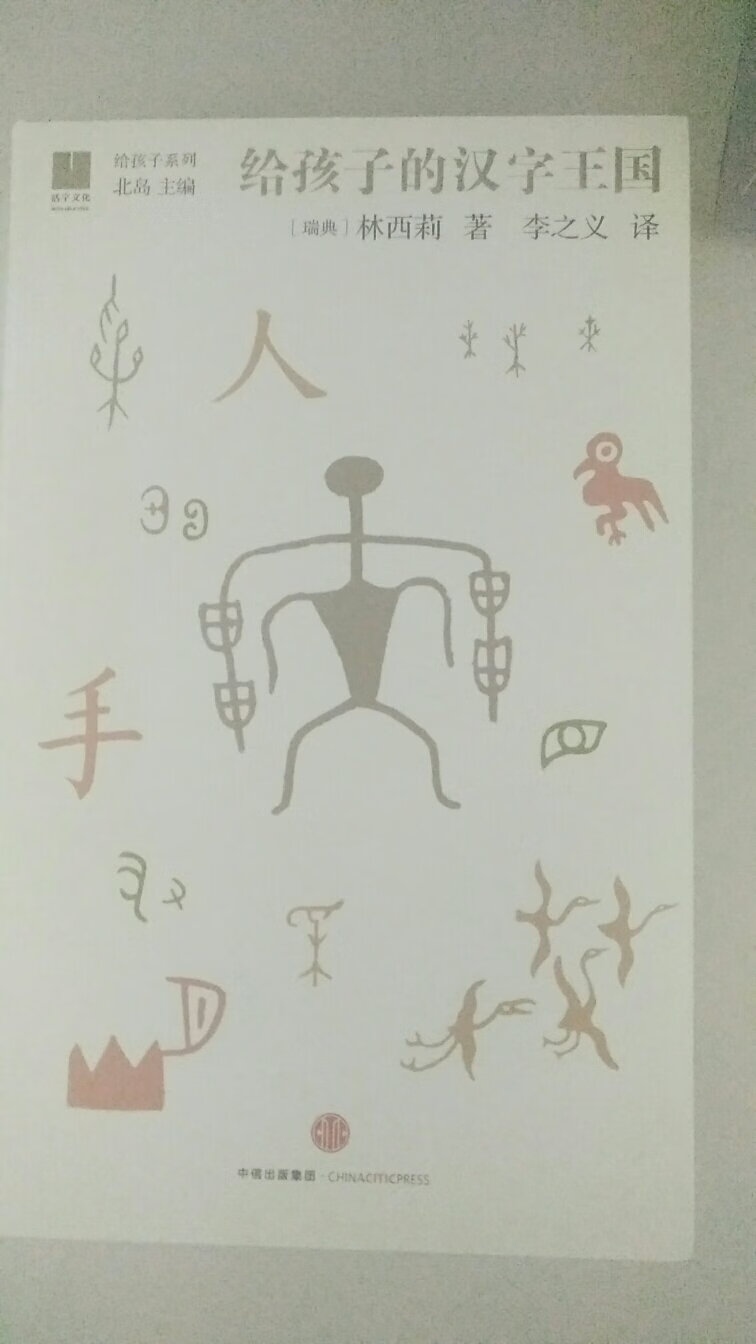 给孩子系列
北岛 主编
活字文化
给孩子的汉字王国
［瑞典］林西莉 著 李之义 译
人
手
中信出版集团·CHINACITICPRESS